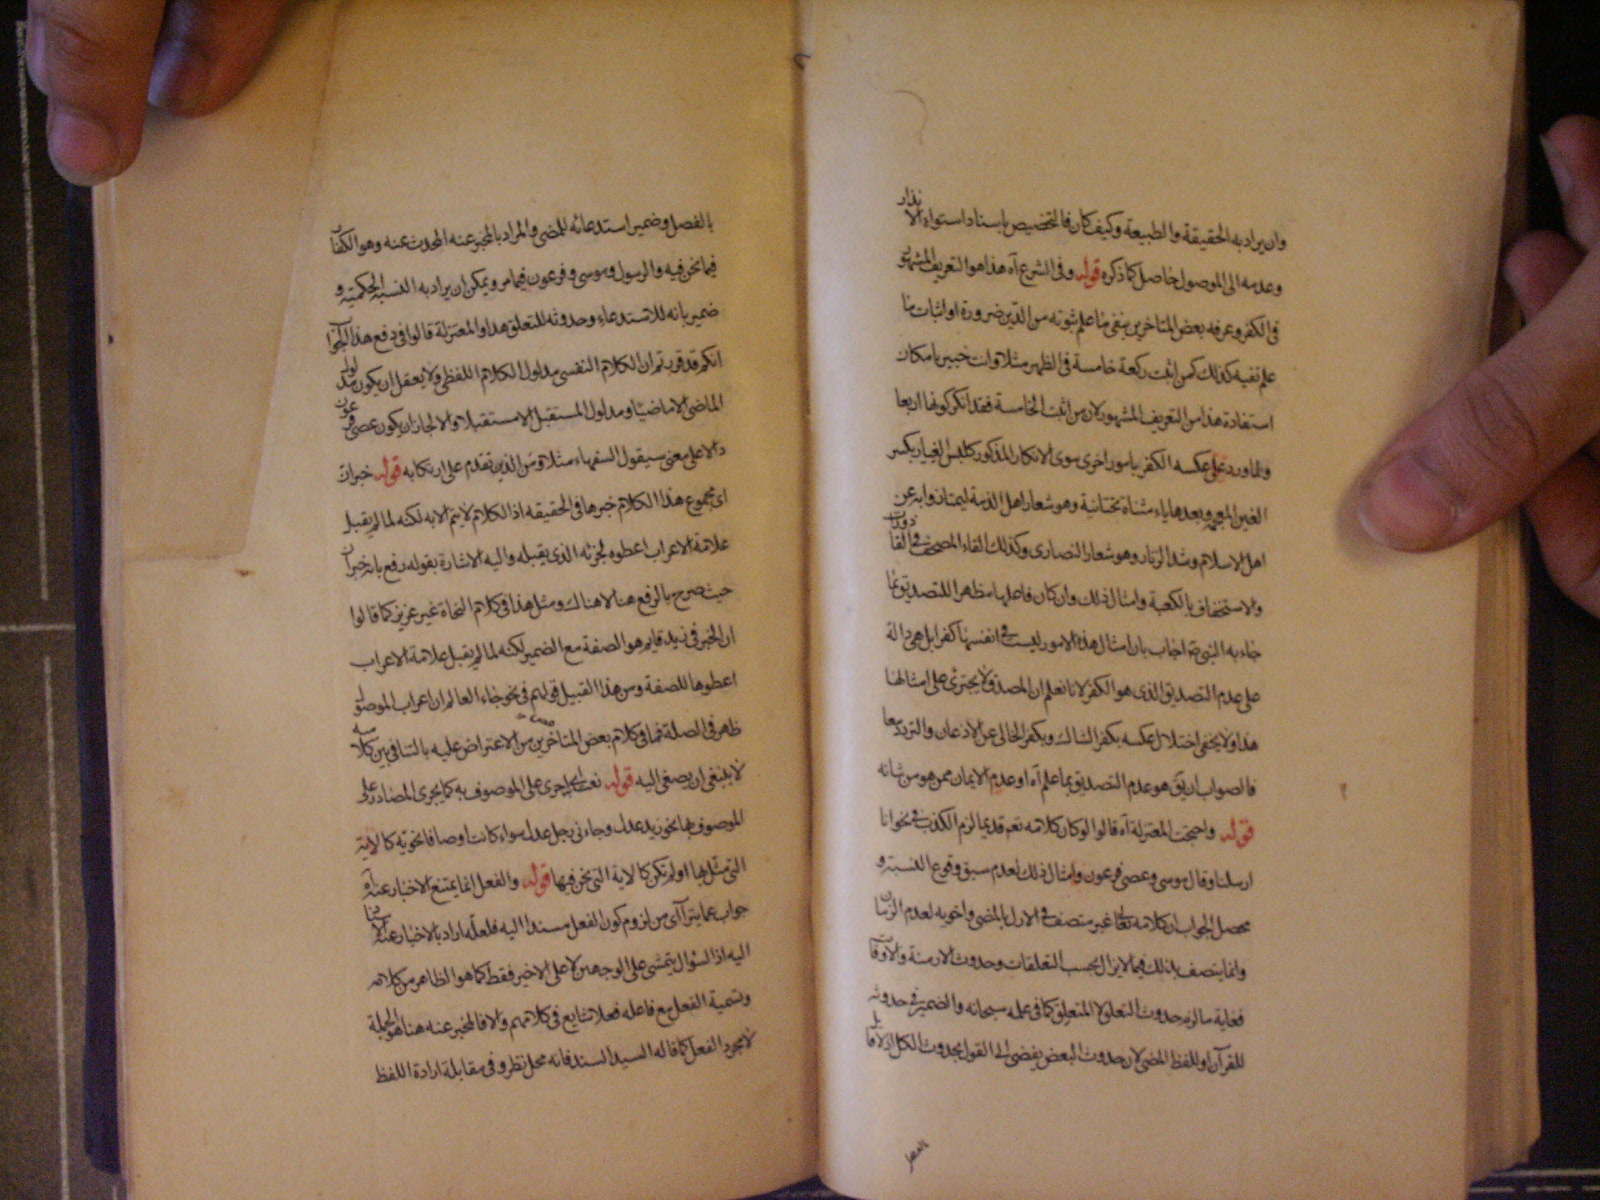 وان يراد به الحقيقة والطبيعة وكيف كان فالتخصيص باسناد استواء الانذار
وعدمه الى الموصول حاصل كما ذكره قوله وفى الشرع آه هذا هو التعريف المشهور
فى الكفر وعرفه بعض المتاخرين بنفى ما علم ثبوته من الدين ضرورة او اثبات ما
علم نفيه كذلك كمن اثبت ركعة خامسة فى الظهر مثلا وانت خبير بامكان
استفادة هذا من التعريف المشهور لان من اثبت الخامسة فقد انكر كونها اربعا
ولما ورد على عكسه الكفر بامور اخرى سوى الانكار المذكور كلبس الغيار بكسر
الغين المعجمة وبعدها ياء مثناة تحتانية وهو شعار اهل الذمة ليمتازوا به عن
اهل الاسلام وشد الزنار وهو شعار النصارى وكذلك القاء المصحف فى القاذورات
والاستخفاف بالكعبة وامثال ذلك وان كان فاعلها مظهرا للتصديق بما
جاء به النبى ص اجاب بان امثال هذه الامور ليست فى انفسها كفرا بل هى دالة
على عدم التصديق الذى هو الكفر لانا نعلم ان المصدق لا يجترئ على امثالها
هذا ولا يخفى اختلال عكسه بكفر الشاك وبكفر الخالى عن الاذعان والتردد معا
فالصواب ان يق هو عدم التصديق بما علم آه او عدم الايمان ممن هو من شانه
قوله واحتجت المعتزلة آه قالوا لو كان كلامه تعم قديما لزم الكذب فى نحو انا
ارسلنا وقال موسى وعصى فرعون وامثال ذلك لعدم سبق وقوع النسبة و
محصل الجواب ان كلامه تعالى غير متصف فى الازل بالمضى واخويه لعدم الزمان
وانما يتصف بذلك فيما لا يزال بحسب التعلقات وحدوث الازمنة والاوقات
فغاية ما لزم حدوث التعلق لا المتعلق كما فى علمه سبحانه والضمير فى حدوثه
للقرآن او للفظ المضى لان حدوث البعض يفضى الى القول بحدوث الكل اذ لا قائل
بالفصل
بالفصل وضمير استدعائه للمضى والمراد بالمخبر عنه المحدث عنه وهو الكفار
فيما نحن فيه والرسول وموسى وفرعون فيما مر ويمكن ان يراد به النسبة الحكمية و
ضمير بانه للاستدعاء وحدوثه للتعلق هذا والمعتزلة قالوا فى دفع هذا الجواب
انكم قد قررتم ان الكلام النفسى مدلول الكلام اللفظى ولا يعقل ان يكون مدلول
الماضى الا ماضيا ومدلول المستقبل الا مستقبلا والا لجاز ان يكون عصى فرعون
دالا على معنى سيقول السفهاء مثلا ومن الذين تقدم على ارتكابه قوله خبر ان
اى مجموع هذا الكلام خبرها فى الحقيقه اذ الكلام لا يتم الا به لكنه لما لم يقبل
علامة الاعراب اعطوه لجزئه الذى يقبله واليه الاشارة بقوله رفع بانه خبر ان
حيث صرح بالرفع هنا لا هناك ومثل هذا فى كلام النحاة غير عزيز كما قالوا
ان الخبر فى زيد قايم هو الصفة مع الضمير لكنه لما لم يقبل علامة الاعراب
اعطوها للصفة ومن هذا القبيل قولهم فى نحو جاء العالم ان اعراب الموصول
ظهر فى الصلة فما فى كلام بعض المتاخرين من الاعتراض عليه بالتنافى بين كلاميه
لا ينبغى ان يصغى اليه قوله نعت اجرى على الموصوف به كما يجرى المصادر على
الموصوف بها نحو زيد عدل وجاءنى رجل عدل سواء كانت اوصافا نحوية كالآية
التى مثل بها او لم تكن كالاية التى نحن فيها قوله والفعل انما يمتنع الاخبار عنه آه
جواب عما يتراآى من لزوم كون الفعل مسندا اليه فلعله اراد بالاخبار عنه الاسناد
اليه اذ السؤال يتمشى على الوجهين لا على الاخير فقط كما هو الظاهر من كلامه
وتسمية الفعل مع فاعله فعلا شايع فى كلامهم والا فالمخبر عنه هنا هو الجملة
لا مجرد الفعل كما قاله السيد السند فانه محل نظر وفى مقابلة ارادة اللفظ